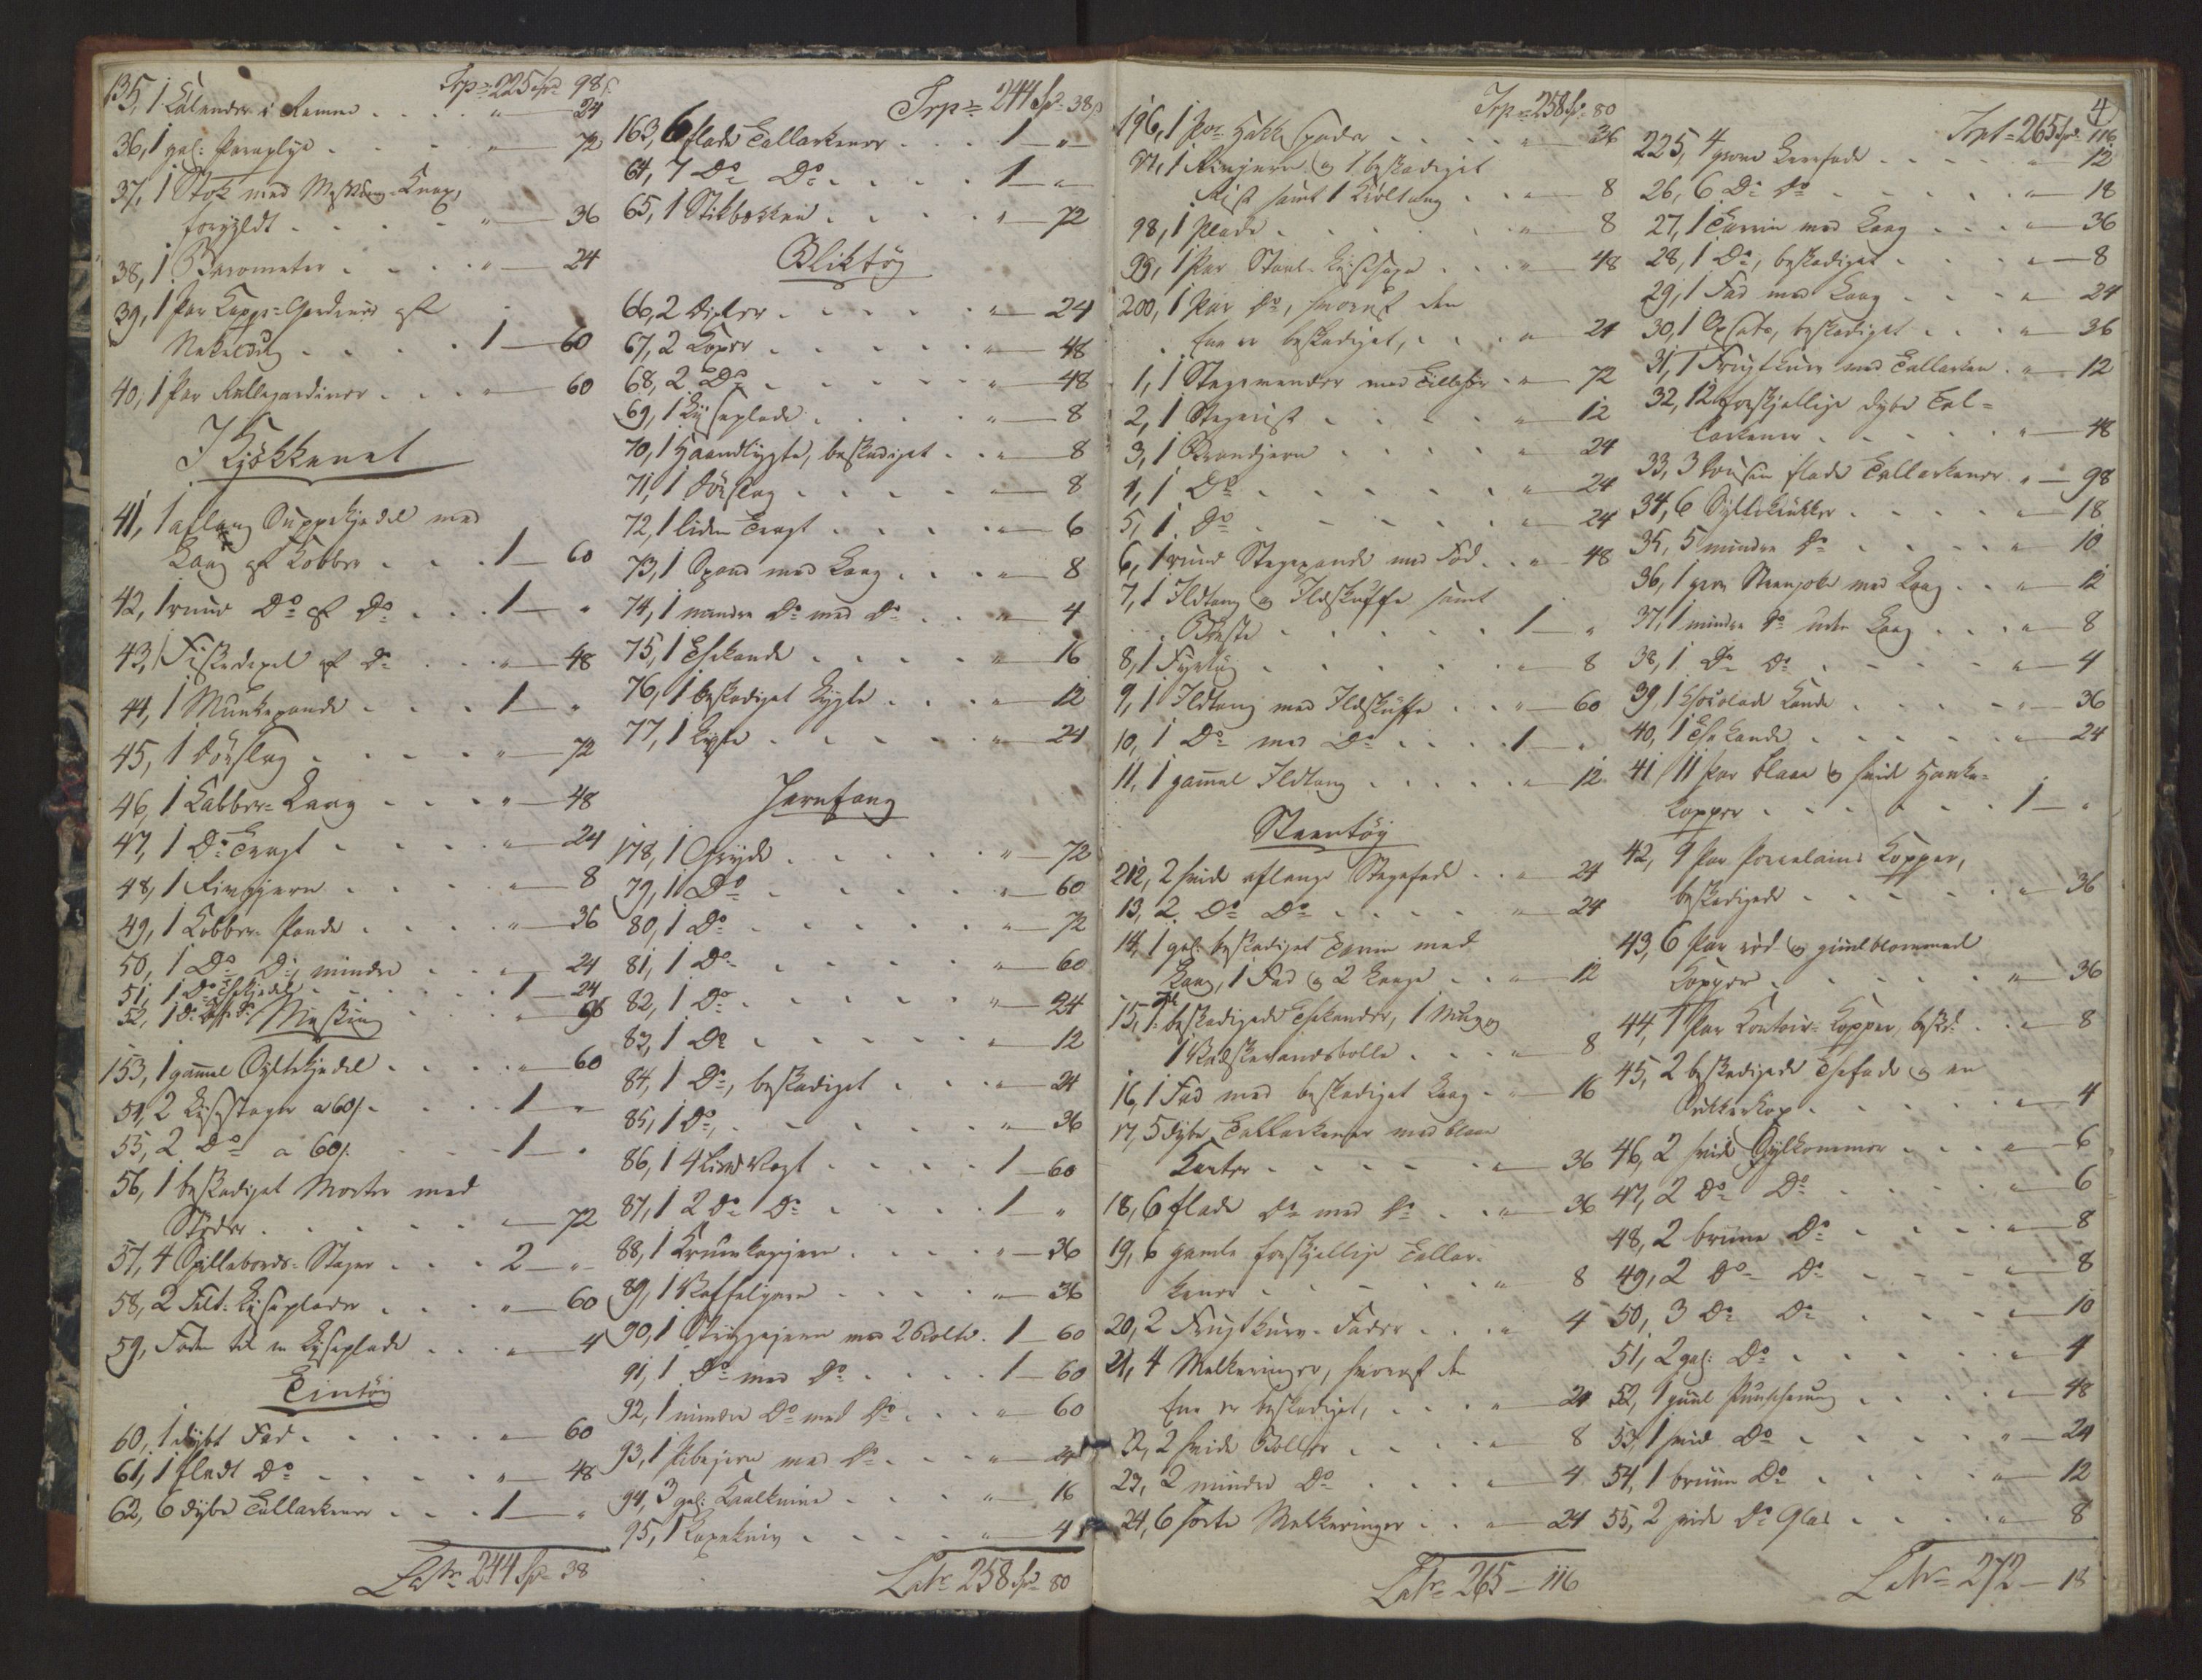 Trp = 225 spd 98 s
135, 1 Calender i Ramme . . . " — 24
36, 1 gal: Paraplye . . . " — 72
37, 1 Stok med Messing-Knap,
forgyldt . . . . " — 36
38, 1 Barometer . . . . " — 24
39, 1 Par Kappe-Gardiner af
. . . . 1 — 60
40, 1 Par Rullegardiner . . . " — 60
I Kjökkenet
41, 1 aflang Suppekjedel med
Laag af Kobber . . . 1 — 60
42, 1 rund Do af Do . . . 1 — "
43, 1 Fiskekjedel af Do . . . " — 48
44, 1 Munkepande . . . 1 — "
45, 1 Dörslag . . . . " — 72
46, 1 Kobber-Laag . . . " — 48
47, 1 Do Tragt . . . . " — 24
48, 1 Rivejern . . . . " — 8
49, 1 Kobber-Pande . . . . " — 36
50, 1 Do Do, mindre . . " — 24
51, 1 Do Thekjedel . . . . 1 — 24
52, 1 Do . . " — 98
Messing
153, 1 gammel Syltekjedel . . . . " — 60
54, 2 Lysestager a 60 s . . . 1 — "
55, 2 Do a 60 s . . . 1 — "
56, 1 beskadiget Morter med
Stöder . . . . . " — 72
57, 4 Spillebords-Stager . . . 2 — "
58, 2 Filt-Lyseplader . . . " — 60
59, Foden til en Lyseplade . . . " — 4
Tintöj
60, 1 dybt Fad . . . . . " — 60
61, 1 fladt Do . . . . . " — 48
62, 6 dybe Tallerkener . . . 1 — "
Latr 244 Sp 38
Trp = 244 Sp 38 s
163, 6 flade Tallerkener . . . 1 — "
64, 7 Do Do . . . . 1 — "
65, 1 Stikbekken . . . . " — 72
Bliktöj
66, 2 . . . . . " — 24
67, 2 . . . . . " — 48
68, 2 Do . . . . . " — 48
69, 1 Lyseplade . . . . " — 8
70, 1 Haandlygte, beskadiget . . " — 8
71, 1 Dörslag . . . . " — 8
72, 1 liden Tragt . . . . " — 6
73, 1 Spand med Laag . . . " — 8
74, 1 mindre Do med Do . . " — 4
75, 1 Thekande . . . . " — 16
76, 1 beskadiget Lygte . . . " — 12
77, 1 Lygte . . . . . " — 24
Jernfang
178, 1 Gryde . . . . . " — 72
79, 1 Do . . . . . " — 60
80, 1 Do . . . . . " — 72
81, 1 Do . . . . . " — 60
82, 1 Do . . . . . " — 24
83, 1 Do . . . . . " — 12
84, 1 Do, beskadiget . . . " — 24
85, 1 Do, . . . . . " — 36
86, 1 4 Vægt . . . . 1 — 60
87, 1 2 Do Do . . . . 1 — "
88, 1 Krumkagejern . . . . " — 36
89, 1 Vaffeljern . . . . " — 36
90, 1 Strygejern med 2 Bolte . 1 — 60
91, 1 Do med Do . . . . 1 — 60
92, 1 mindre Do med Do . . . " — 60
93, 1 Pibejern med Do . . . " — 24
94, 3 gal: Kaalknive . . . " — 16
95, 1 Kagekniv . . . . " — 4
Latr 258 Sp 80
Trp = 258 Sp 80
196, 1 Par Hakkespader . . . . " — 36
97, 1 Rivejern og 1 beskadiget
Rist samt 1 . . . " — 8
98, 1 Plade . . . . . " — 8
99, 1 Par Staal-Lysesaxe . . . " — 48
200, 1 Par Do, hvoraf den
Ene er beskadiget, . . . " — 24
1, 1 Stegevender med Tilbehör . " — 72
2, 1 Stegerist . . . . " — 12
3, 1 Brandjern . . . . " — 24
4, 1 Do . . . . . " — 24
5, 1 Do . . . . . " — 24
6, 1 rund Stegepande med Fod . . " — 48
7, 1 Ildtang og Ildskuffe samt
Börste . . . . . 1 — "
8, 1 Fyrtöj . . . . . " — 8
9, 1 Ildtang med Ildskuffe . . " — 60
10, 1 Do med Do . . . . 1 — "
11, 1 gammel Ildtang . . . . " — 12
Steentöj
212, 2 hvide aflange Stegefade . . " — 24
13, 2 Do Do . . . . " — 24
14, 1 gal: beskadiget Terrin med
Laag, 1 Fad og 2 Laage . . " — 12
15, 2 beskadigede Thekander, 1 Mug og
1 Vadskevandsbolle . . . " — 8
16, 1 Fad med beskadiget Laag . " — 16
17, 5 dybe Tallerkener med blaae
Kanter . . . . . " — 36
18, 6 flade Do med Do . . " — 36
19, 6 gamle forskjellige Taller-
kener . . . . . " 8
20, 2 Frugtkurv-Fade . . . " 4
21, 4 Melkeringer, hvoraf den
Ene er beskadiget, . . . " — 24
22, 2 hvide Boller . . . . " — 8
23, 2 mindre Do . . . . " — 4
24, 6 sorte Melkeringer . . " — 24
Latr 265 — 116
4
Trpt = 265 Spd 116
225, 4 grove Leerfade . . . . " — 12
26, 6 Do Do . . . . " — 18
27, 1 Terrin med Laag . . . " — 36
28, 1 Do, beskadiget . . . " — 8
29, 1 Fad med Laag . . . " — 24
30, 1 Opsats, beskadiget . . . " — 36
31, 1 Frugtkurv med Tallerken . " — 12
32, 12 forskjellige dybe Tal-
lerkener . . . . . " — 48
33, 3 Dousin flade Tallerkener . " — 98
34, 6 Syltekrukker . . . . " — 18
35, 5 mindre Do . . . . " — 10
36, 1 Steenjobe med Laag . . " — 12
37, 1 mindre Do uden Laag . . . " — 8
38, 1 Do Do . . . . " — 4
39, 1 Chocolade Kande . . . . " — 36
40, 1 Thekande . . . . . " — 24
41, 11 Par blaae og hvide Hanke-
kopper . . . . . . 1 — "
42, 9 Par Porcelains Kopper,
beskadigede . . . . . " — 36
43, 6 Par röd og guulblommede
Kopper . . . . . . " — 36
44, 1 Par Kontoir-Kopper, beskd . . " — 8
45, 2 beskadigede Thefade og en
Sukkerkop . . . . . " — 4
46, 2 hvide Sylkommer . . . " — 6
47, 2 Do Do . . . . " — 6
48, 2 brune Do . . . . " — 8
49, 2 Do Do . . . . " — 8
50, 3 Do Do . . . . " — 10
51, 2 gal: Do . . . . . " — 4
52, 1 guul . . . . " — 48
53, 1 hvid Do . . . . " — 24
54, 1 bruun Do . . . . " — 12
55, 2 hvide Do Glas . . . . " — 8
Latr = 272 — 18